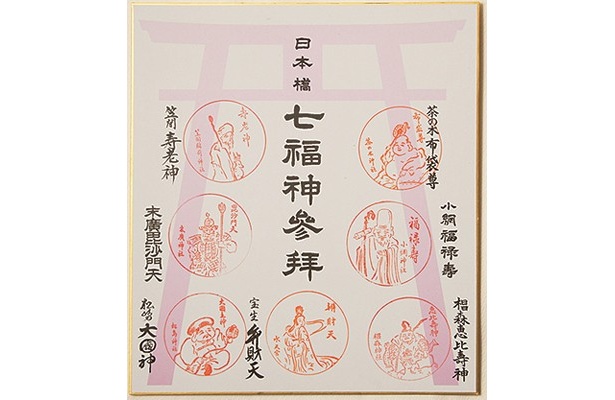 日本橋
七福神參拜
茶の木 布袋尊
小網 福禄壽
椙森 恵比壽神
宝生 弁財天
笠间 寿老神
末廣 毘沙門天
松嶋 大國神
布袋尊
茶の木神社
福禄寿
小網神社
恵比寿神
椙森神社
辨財天
水天宮
寿老神
笠間稲荷神社
毘沙門天
末廣神社
大國主神
松島神社